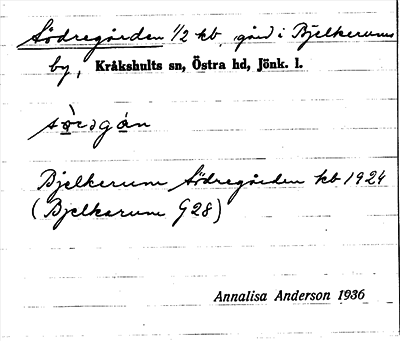 Södregården 1/2 kb, gård i Bjelkerums
by, Kråkshults sn, Östra hd, Jönk. l.
sö̀rəgån
Bjelkerum Södregården kb 1924
(Bjelkarum G28)
Annalisa Anderson 1936